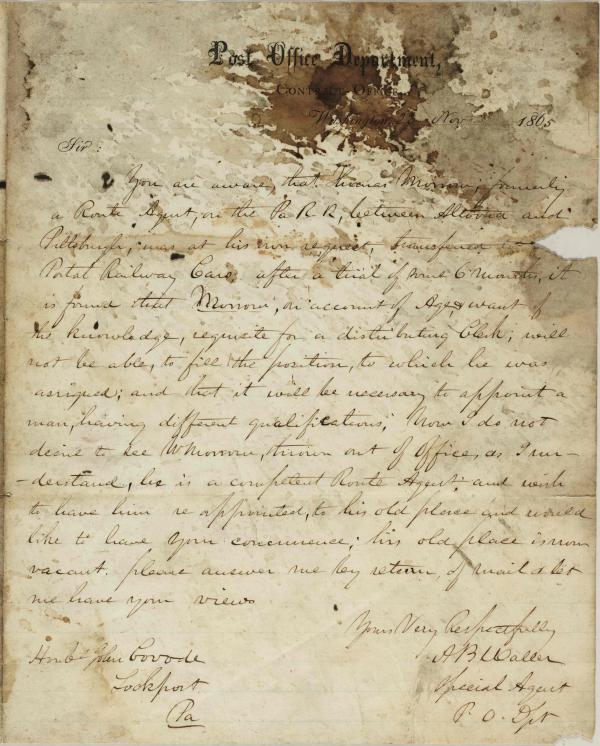 Post Office Department,
Contract Office,
Washington, Nov 1865
Sir:
You are aware, that Thomas Morrow, formerly
a Route Agent, on the Pa R R, between Altoona and
Pittsburgh, was at his own request, transfered to
Postal Railway Cars. after a trial of some 6 months, it
is found that Morrow, on account of Age, & want of
the knowledge, requisite for a distributing Clerk, will
not be able, to fill the position, to which he was
assigned; and that it will be necessary to appoint a
man, having different qualifications; Now I do not
desire to see Morrow, thrown out of Office, as I un-
-derstand, he is a competent Route Agent and wish
to have him re appointed, to his old place and would
like to have your concurrence; his old place is now
vacant. please answer me by return, of mail & let
me have your views
Yours Very Respectfully
Honble John Covode A B Waller
Lockport Special Agent
Pa P. O. Dpt